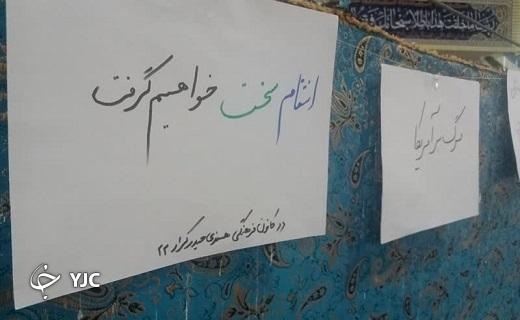 انتقام سخت خواهیم گرفت
کانون فرهنگی هنری حیدر کرار ۲۲
مرگ بر آمریکا
YJC